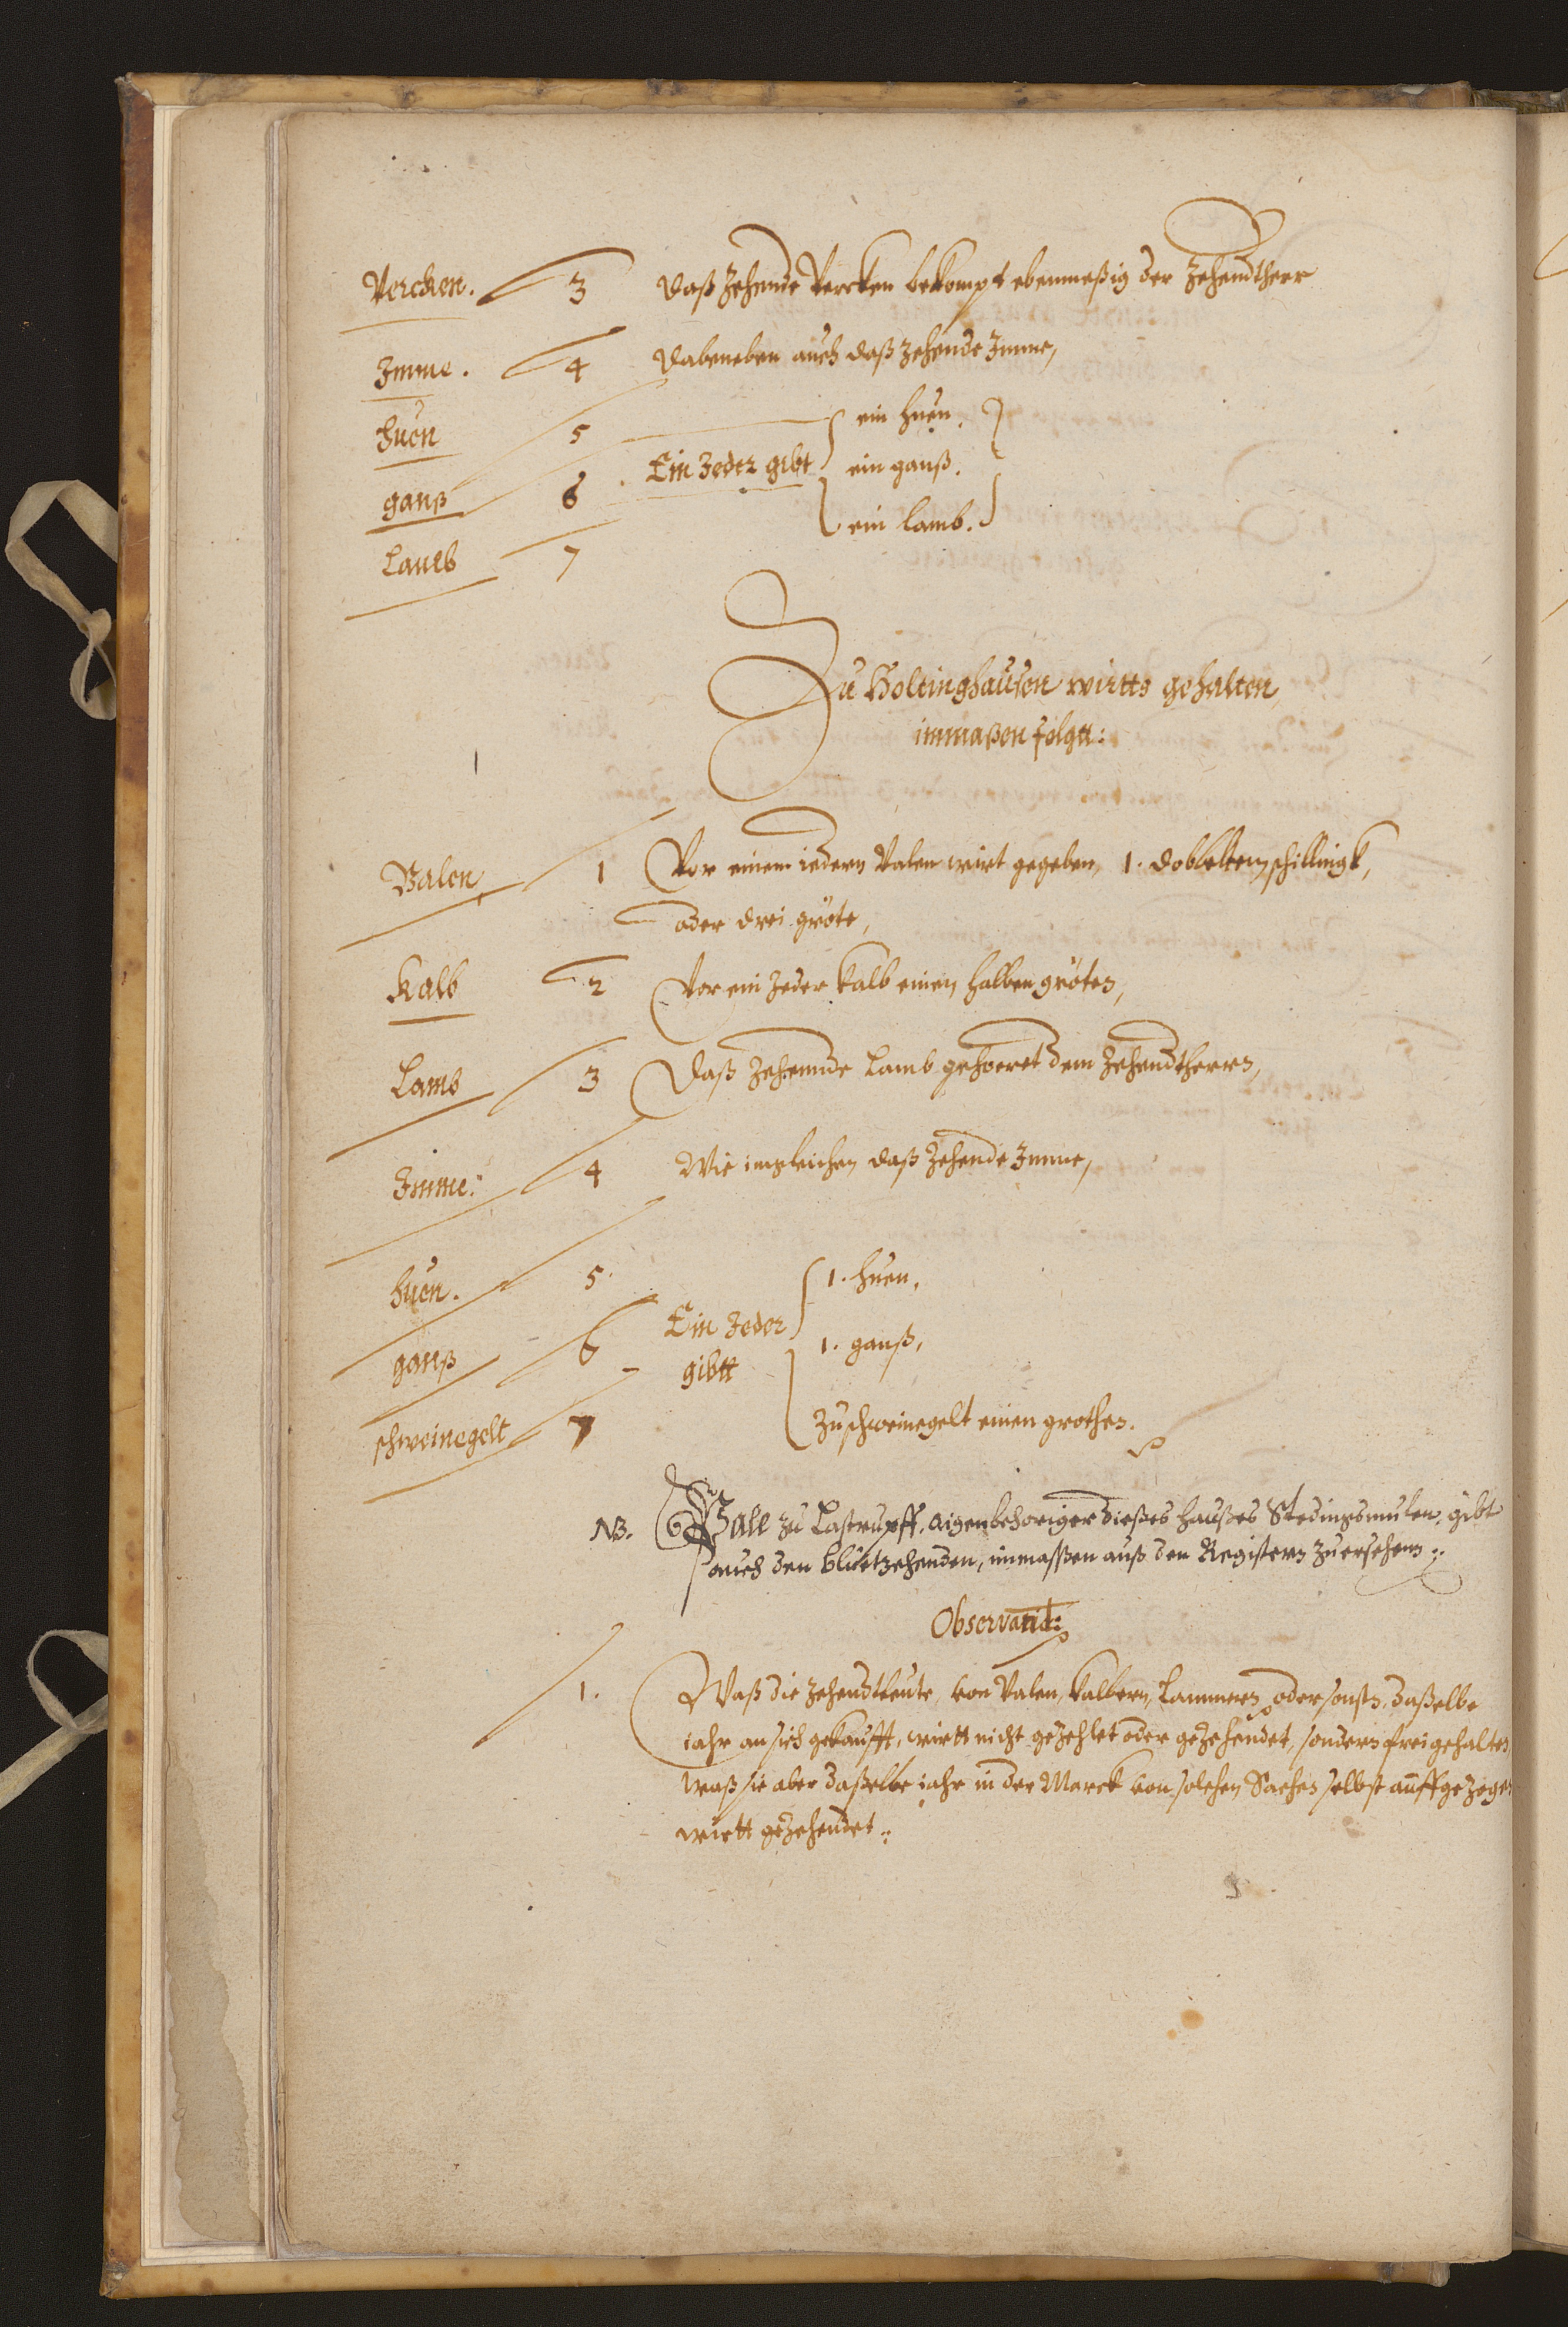 Vercken. 3 Daß Zehende Vercken bekompt ebenmeßig der Zehendtherr
Imme. 4 Dabeneben auch daß zehende Imme,
huen 5 ein huen,
ganß 6 Ein Jeder gibt ein ganß,
Lamb 7 ein Lamb.
Zu Holtinghausen wirtts gehalten
immaßen folgtt:
Valen 1 Vor einem iedern Valen wirt gegeben, 1. dobbelten schillingk,
oder drei gröte,
Kalb 2 Vor ein Jeder Kalb einen halben gröten,
Lamb 3 Daß Zehennde Lamb gehoeret dem Zehendtherrn,
Imme: 4 Wie imgleichen daß Zehende Imme,
huen. 5 1. huen,
Ein Jeder
ganß 6 1. ganß,
gibtt
schweinegelt 7 Zu schweinegelt einen grothen.
NB. Wall zu Lastrupff, aigenbehoriger dießes haußes Stedingsmulen, gibt
auch den bluetzehenden, inmaßsen auß den Registern zuersehen.
Observatio:
1. Waß die Zehendtleute, von Valen, Kalbern, Lammern, oder sonsten, daßelbe
iahr an sich gekaufft, wirtt nicht gezehlet oder gezehendet, sondern frei gehalten,
waß sie aber daßelbe iahr in der Marck von solchen Sachen selbst auffgezogen
wirtt gezehendet.